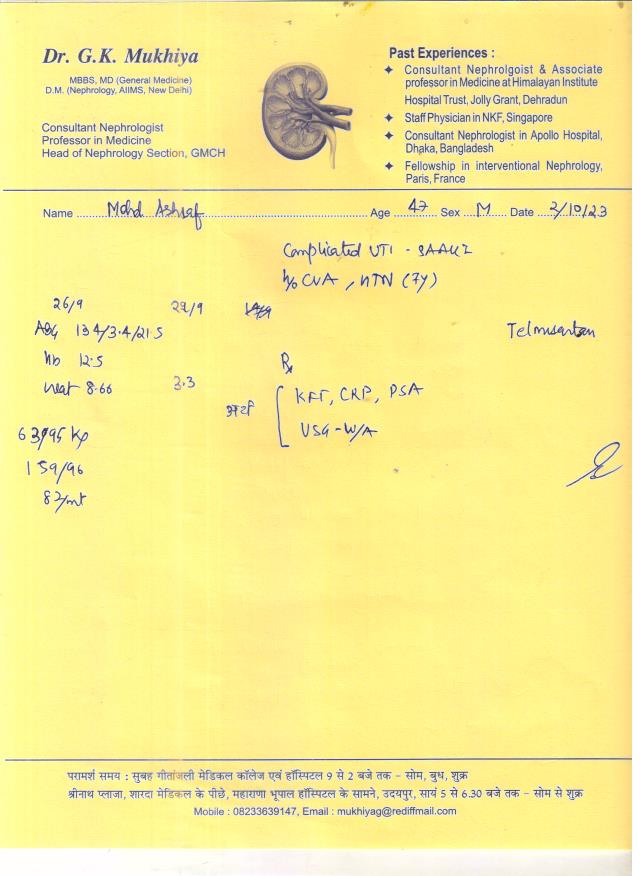 Dr. G.K. Mukhiya
MBBS, MD (General Medicine)
D.M. (Nephrology, AIIMS, New Delhi)
Consultant Nephrologist
Professor in Medicine
Head of Nephrology Section, GMCH
Past Experiences :
Consultant Nephrolgoist & Associate
professor in Medicine at Himalayan Institute
Hospital Trust, Jolly Grant, Dehradun
Staff Physician in NKF, Singapore
Consultant Nephrologist in Apollo Hospital,
Dhaka, Bangladesh
Fellowship in interventional Nephrology,
Paris, France
Name Mohd Ashraf Age 47 Sex M Date 2/10/23
Complicated UTI -
h/o CVA, HTN (7y)
26/9 29/9
134/3.4/21.5 Telmisartan
Hb 12.5 Rx
8.66 3.3
KFT, CRP, PSA
USG - W/A
159/96
82/mt
परामर्श समय : सुबह गीतांजली मेडिकल कॉलेज एवं हॉस्पिटल 9 से 2 बजे तक - सोम, बुध, शुक्र
श्रीनाथ प्लाजा, शारदा मेडिकल के पीछे, महाराणा भूपाल हॉस्पिटल के सामने, उदयपुर, सायं 5 से 6.30 बजे तक - सोम से शुक्र
Mobile : 08233639147, Email : mukhiyag@rediffmail.com